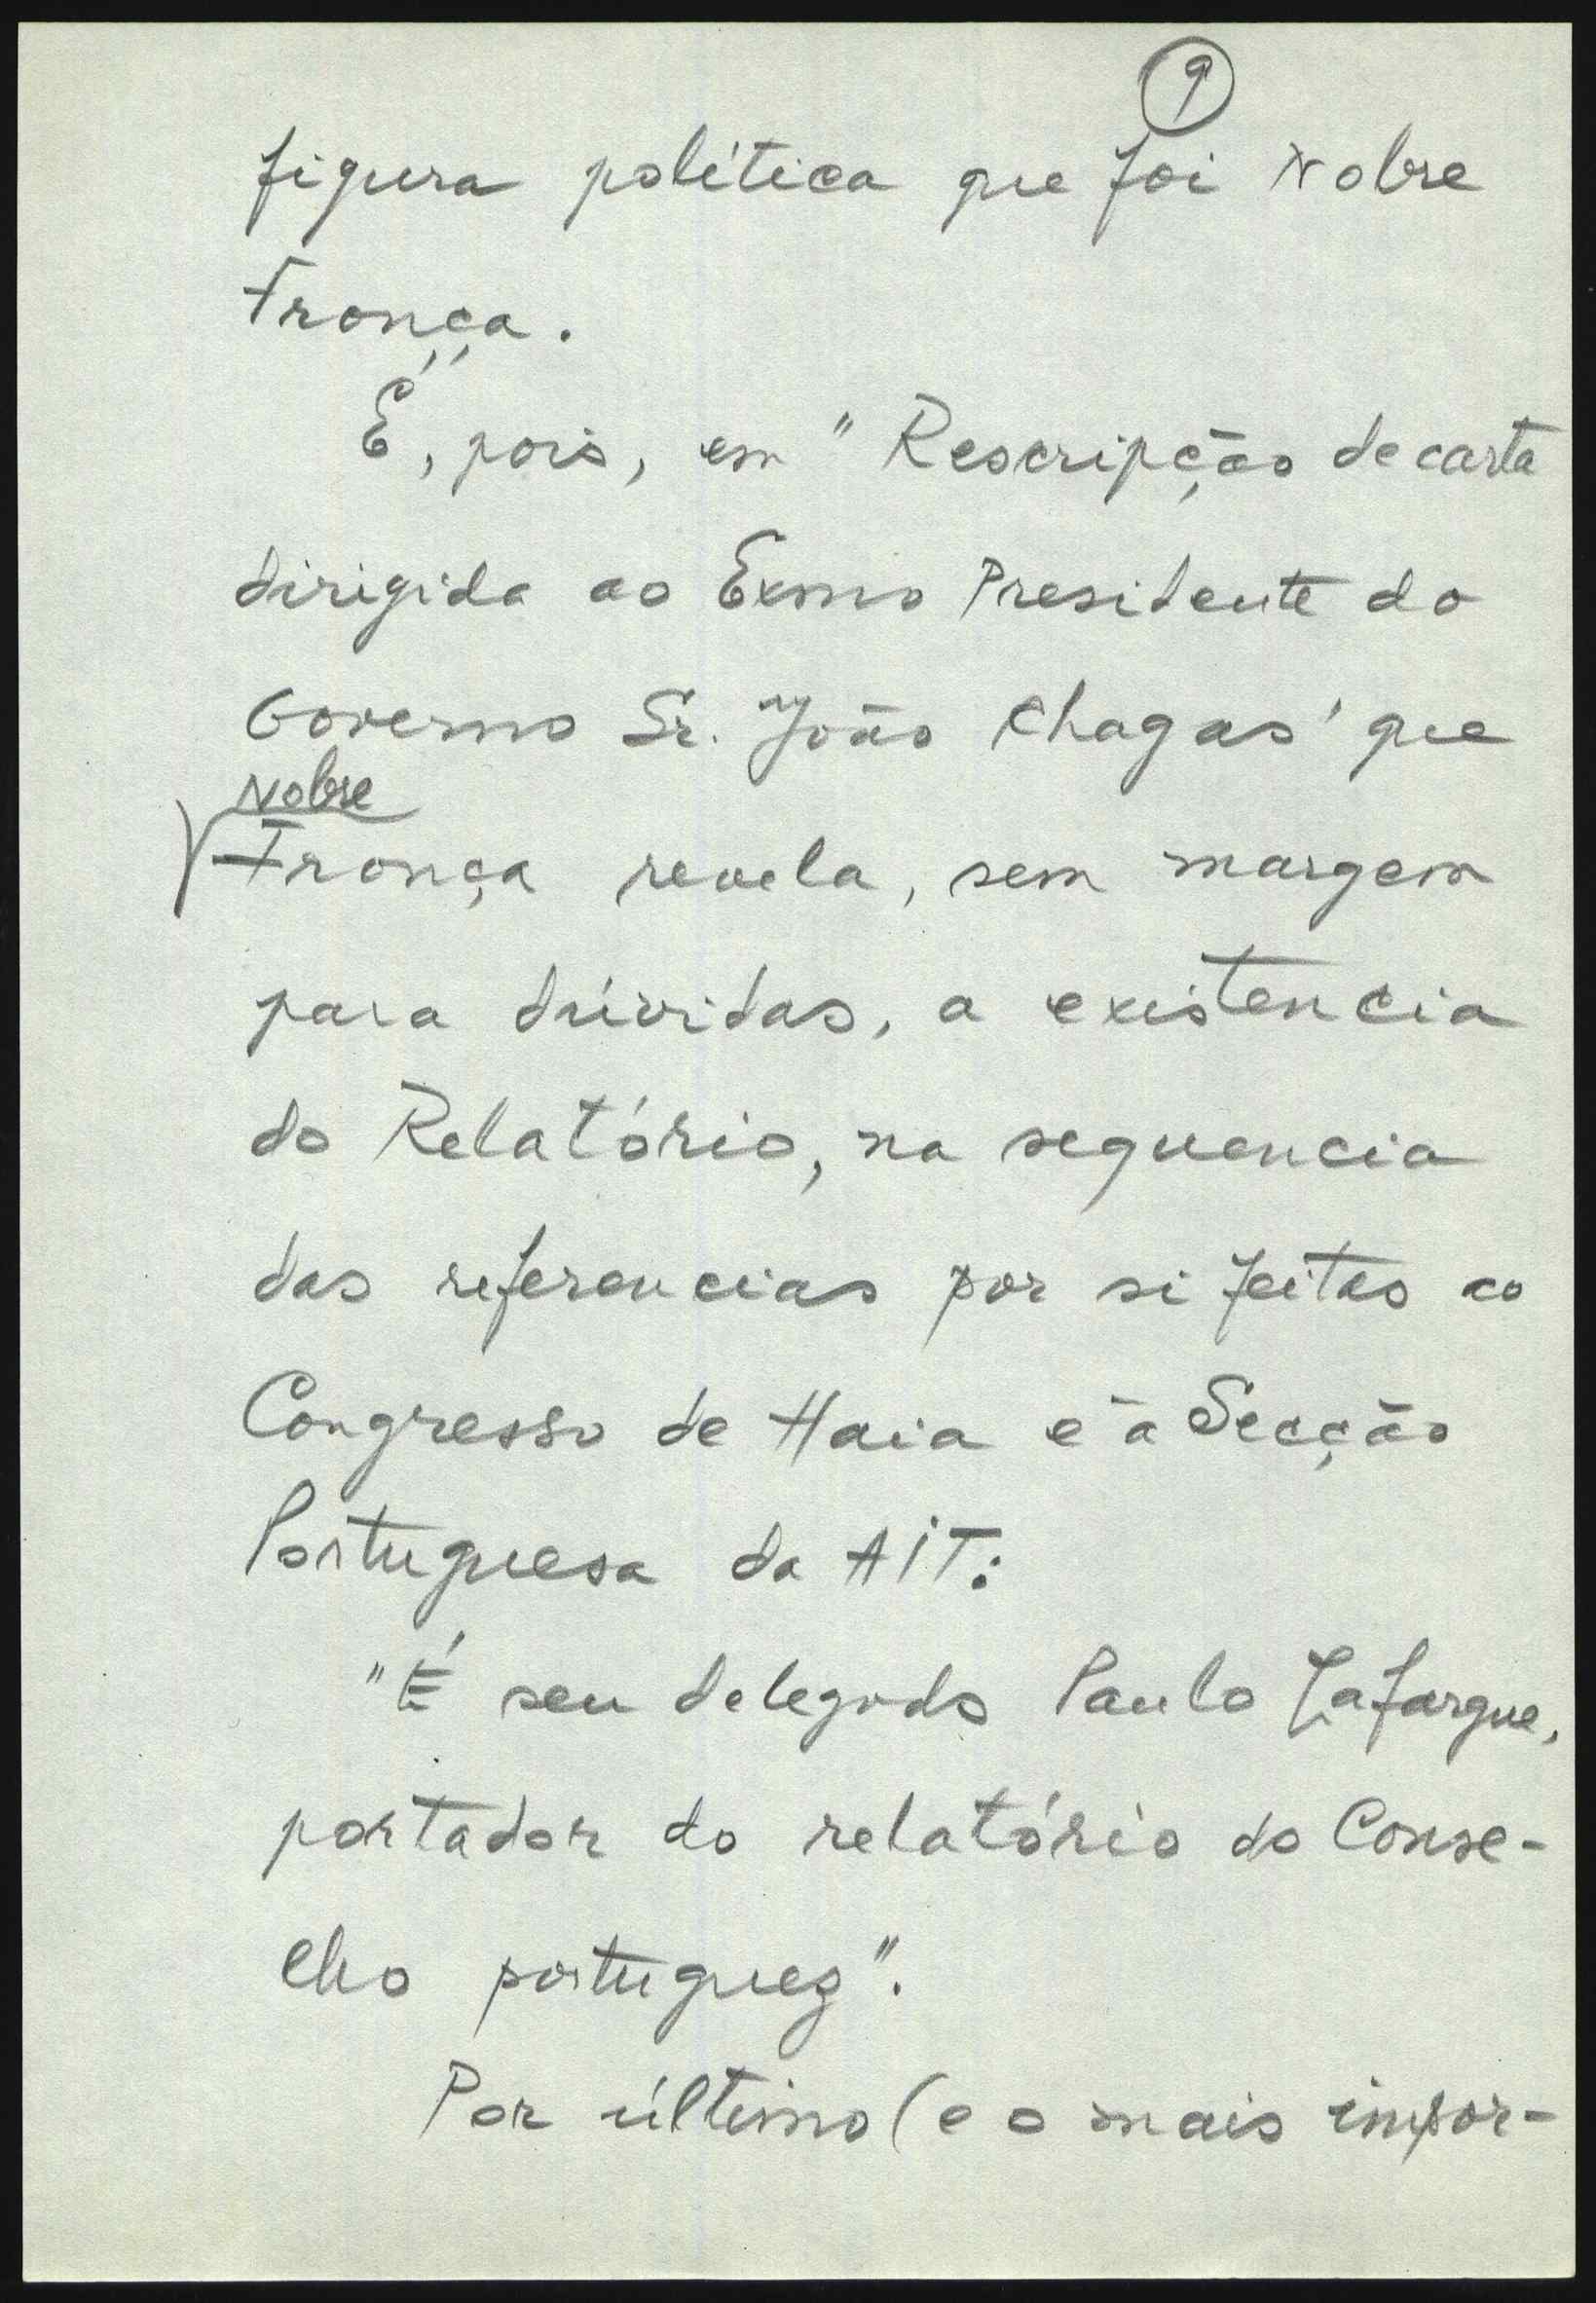 9
figura política que foi Nobre
França.
É, pois, em "Rescripção de carta
dirigida ao Exmo Presidente do
Governo Sr. João Chagas' que
Nobre
França revela, sem margem
para dúvidas, a existencia
do Relatório, na sequencia
das referencias por si feitas ao
Congresso de Haia e à Secção
Portuguesa da AIT:
"É seu delegado Paulo Lafargue,
portador do relatório do Conse-
lho portuguez".
Por último (e o mais impor-